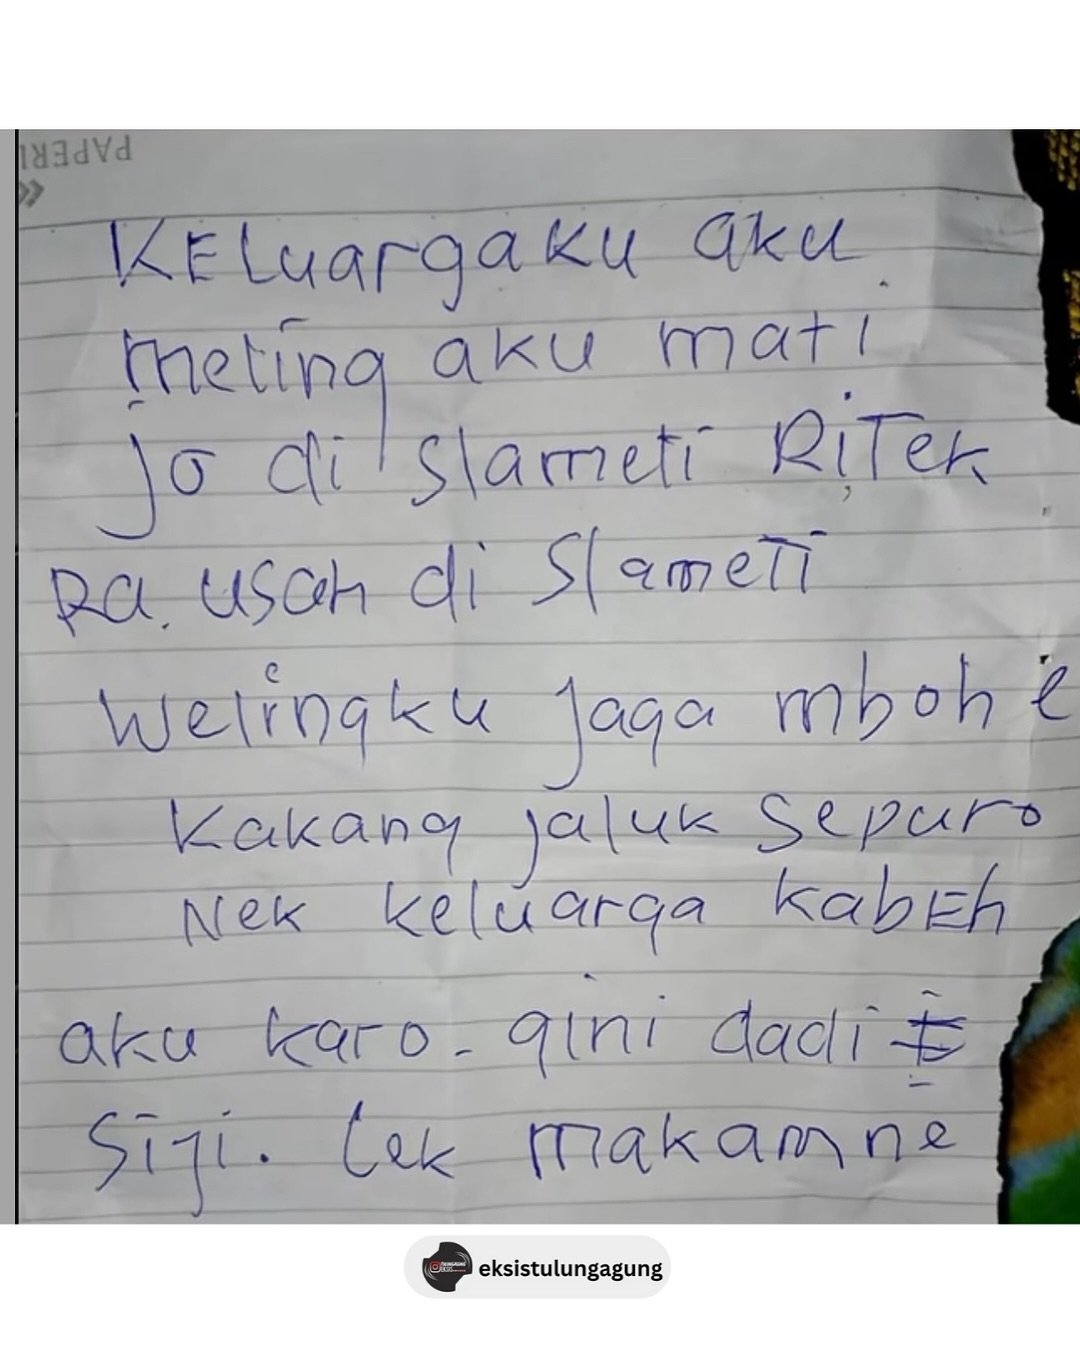 PAPERL
KELuargaku aku
meling aku mati
jo di slameti RiTek
Ra. usah di slameti
Welingku jaga mboh e
Kakang jaluk Sepuro
Nek keluarga kabEh
aku karo - gini dadi
Siji. lek makamne
eksistulungagung